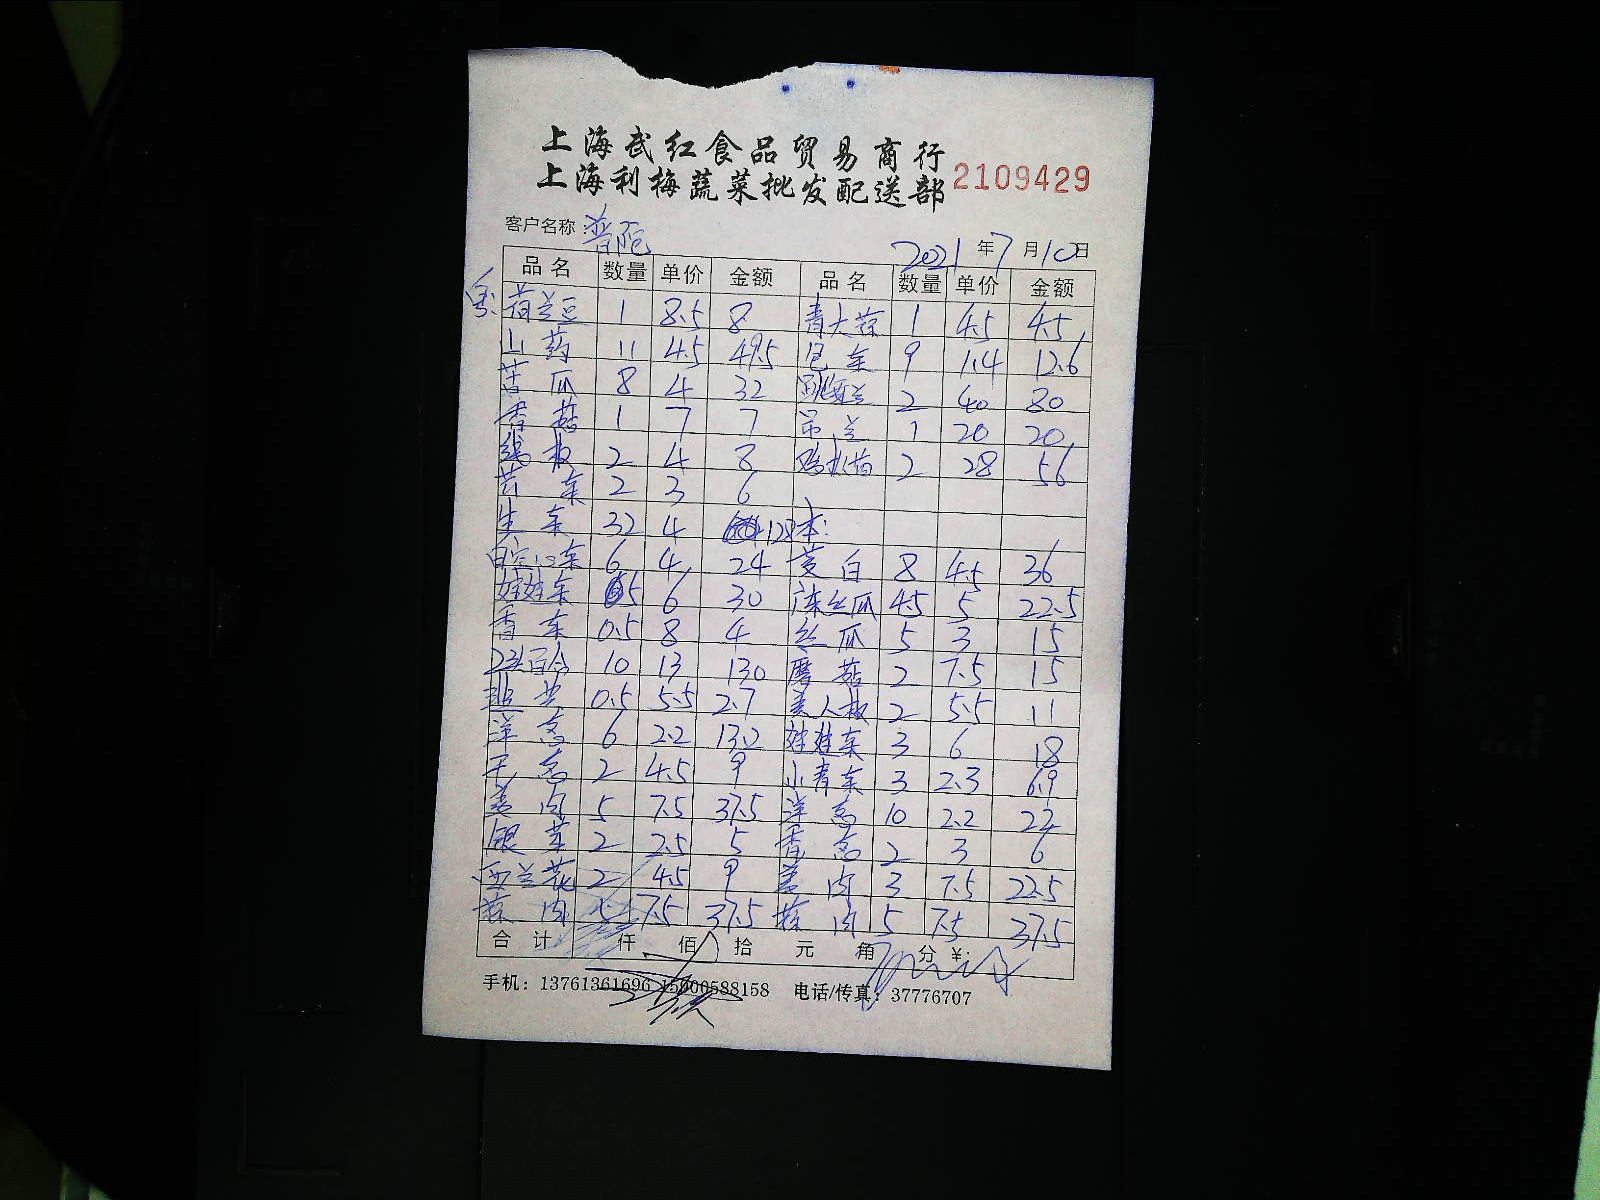 上海武红食品贸易商行
上海利梅蔬菜批发配送部 2109429
客户名称：普陀 2021年7月10日
品名 数量 单价 金额 品名 数量 单价 金额
荷兰豆 1 8.5 8 青大蒜 1 4.5 4.5
山药 11 4.5 49.5 包菜 9 1.4 12.6
苦瓜 8 4 32 2 40 80
香菇 1 7 7 吊兰 1 20 20
2 4 8 2 28 56
芹菜 2 3 6
生菜 32 4 128 本:
6 4 24 茭白 8 4.5 36
娃娃菜 5 6 30 丝瓜 4.5 5 22.5
香菜 0.5 8 4 丝瓜 5 3 15
百合 10 13 130 蘑菇 2 7.5 15
0.5 5.5 2.7 美人椒 2 5.5 11
洋葱 6 2.2 13.2 娃娃菜 3 6 18
2 4.5 9 小青菜 3 2.3 6.9
姜肉 5 7.5 37.5 洋葱 10 2.2 22
银芽 2 2.5 5 香葱 2 3 6
西兰花 2 4.5 9 姜肉 3 7.5 22.5
蒜肉 5 7.5 37.5 蒜肉 5 7.5 37.5
合计 仟 佰 拾 元 角 分 ¥:
手机：13761361696 15000588158 电话/传真：37776707